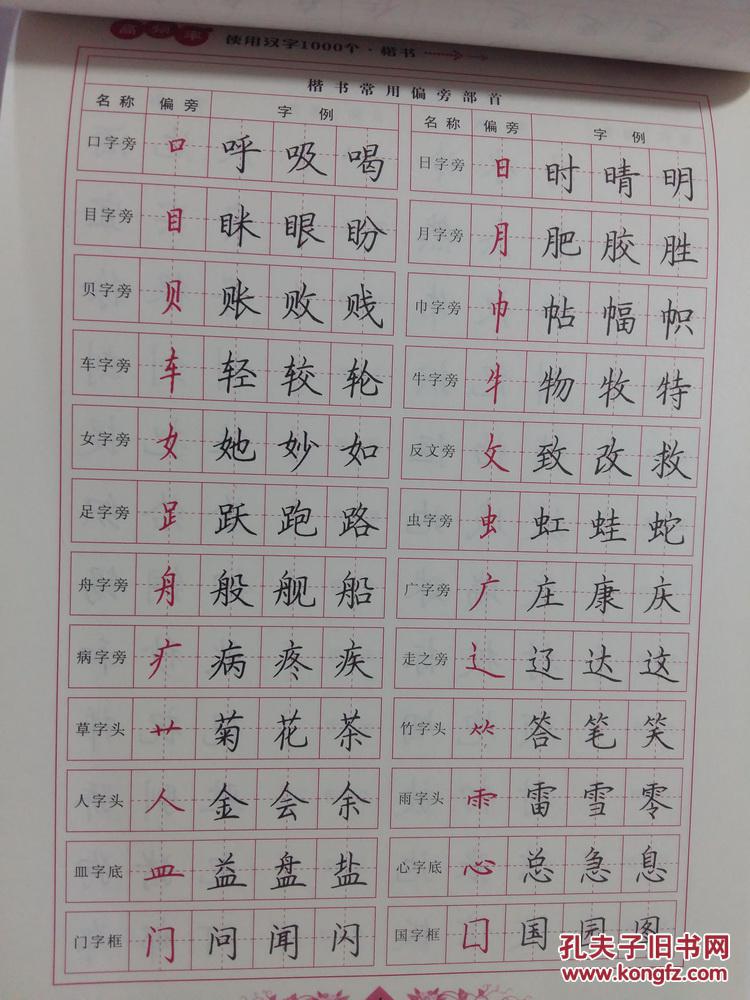 高频率 使用汉字1000个·楷书
楷书常用偏旁部首
名称 偏旁 字例 名称 偏旁 字例
口字旁 口 呼 吸 喝 日字旁 日 时 晴 明
目字旁 目 眯 眼 盼 月字旁 月 肥 胶 胜
贝字旁 贝 账 败 贱 巾字旁 巾 帖 幅 帜
车字旁 车 轻 较 轮 牛字旁 牜 物 牧 特
女字旁 女 她 妙 如 反文旁 攵 致 改 救
足字旁 𧾷 跃 跑 路 虫字旁 虫 虹 蛙 蛇
舟字旁 舟 般 舰 船 广字旁 广 庄 康 庆
病字旁 疒 病 疼 疾 走之旁 辶 辽 达 这
草字头 艹 菊 花 茶 竹字头 ⺮ 答 笔 笑
人字头 人 金 会 余 雨字头 ⻗ 雷 雪 零
皿字底 皿 益 盘 盐 心字底 心 总 急 息
门字框 门 问 闻 闪 国字框 囗 国 园 图
孔夫子旧书网
www.kongfz.com